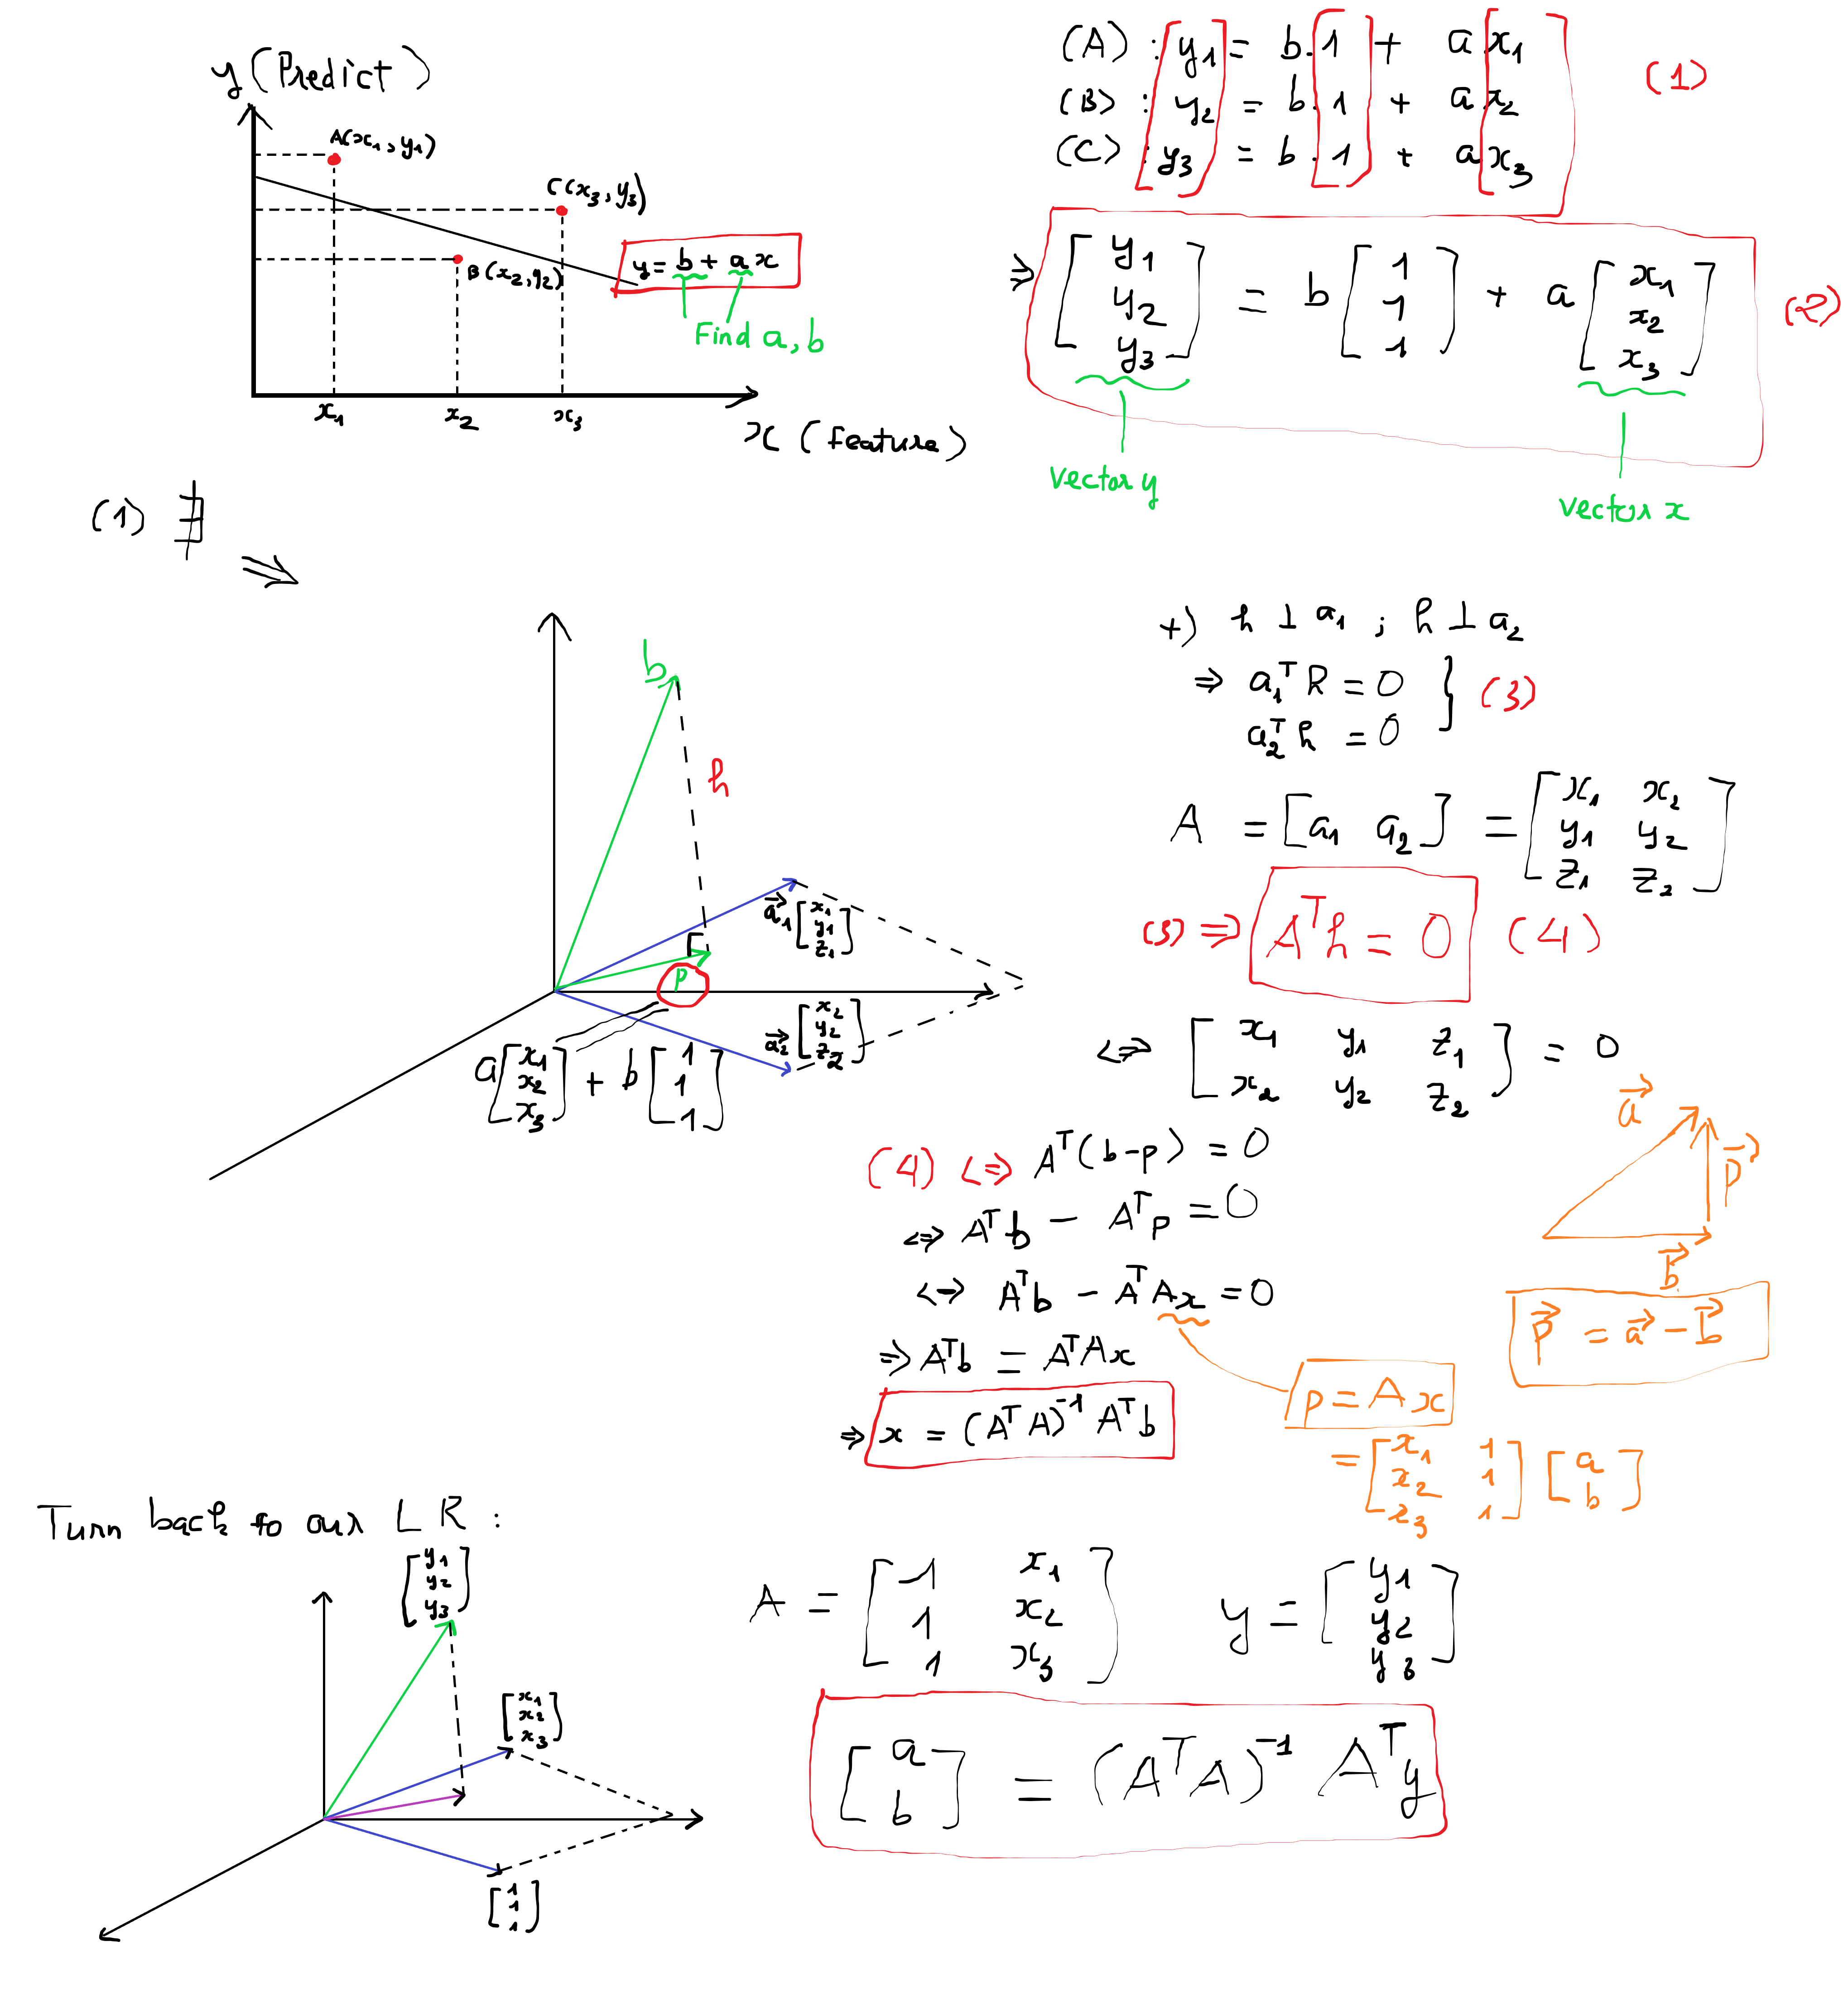 y (Predict)
A(x₁, y₁)
C(x₃, y₃)
B(x₂, y₂)
y = b + a x
Find a, b
x₁ x₂ x₃
x (feature)
(A) : y₁ = b.1 + a x₁
(B) : y₂ = b.1 + a x₂
(C) : y₃ = b.1 + a x₃
(1)
⇒ [y₁ y₂ y₃] = b [1 1 1] + a [x₁ x₂ x₃] (2)
vector y
vector x
(1) ∄
⇒
b
h
a₁→ [x₁ y₁ z₁]
p
a₂→ [x₂ y₂ z₂]
a [x₁ x₂ x₃] + b [1 1 1]
+) h ⊥ a₁ ; h ⊥ a₂
⇒ a₁ᵀ h = 0
a₂ᵀ h = 0 } (3)
A = [a₁ a₂] = [x₁ x₂
y₁ y₂
z₁ z₂]
(3) ⇒ Aᵀh = 0 (4)
⇔ [x₁ y₁ z₁
x₂ y₂ z₂] = 0
(4) ⇔ Aᵀ(b-p) = 0
⇔ Aᵀb - Aᵀp = 0
⇔ Aᵀb - AᵀAx = 0
⇒ Aᵀb = AᵀAx
⇒ x = (AᵀA)⁻¹ Aᵀb
a→
p→
b→
p→ = a→ - b→
p = A x
= [x₁ 1
x₂ 1
x₃ 1] [a
b]
Turn back to our LR :
[y₁ y₂ y₃]
[x₁ x₂ x₃]
[1 1 1]
A = [1 x₁
1 x₂
1 x₃]
y = [y₁
y₂
y₃]
[a
b] = (AᵀA)⁻¹ Aᵀy